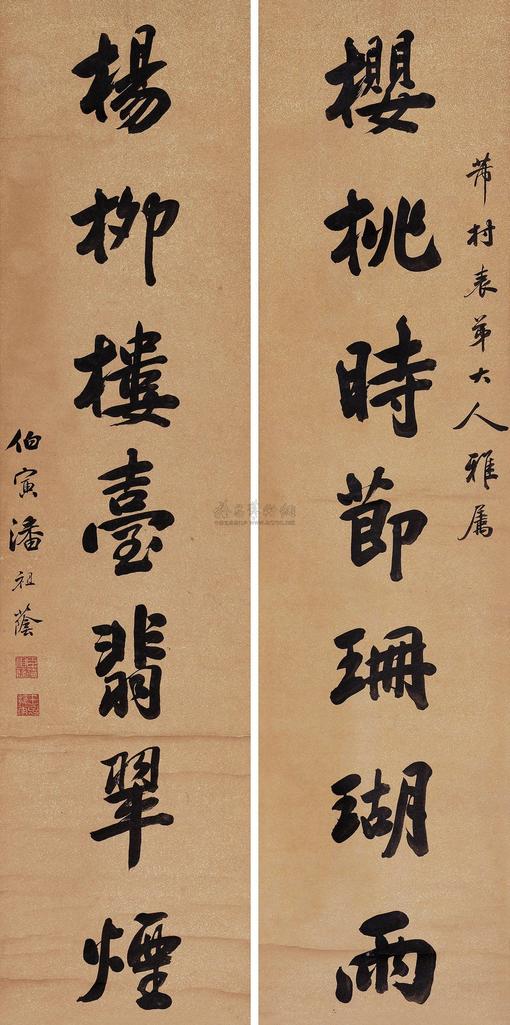 櫻桃時節珊瑚雨
芾村表弟大人雅属
楊柳樓臺翡翠煙
伯寅潘祖蔭